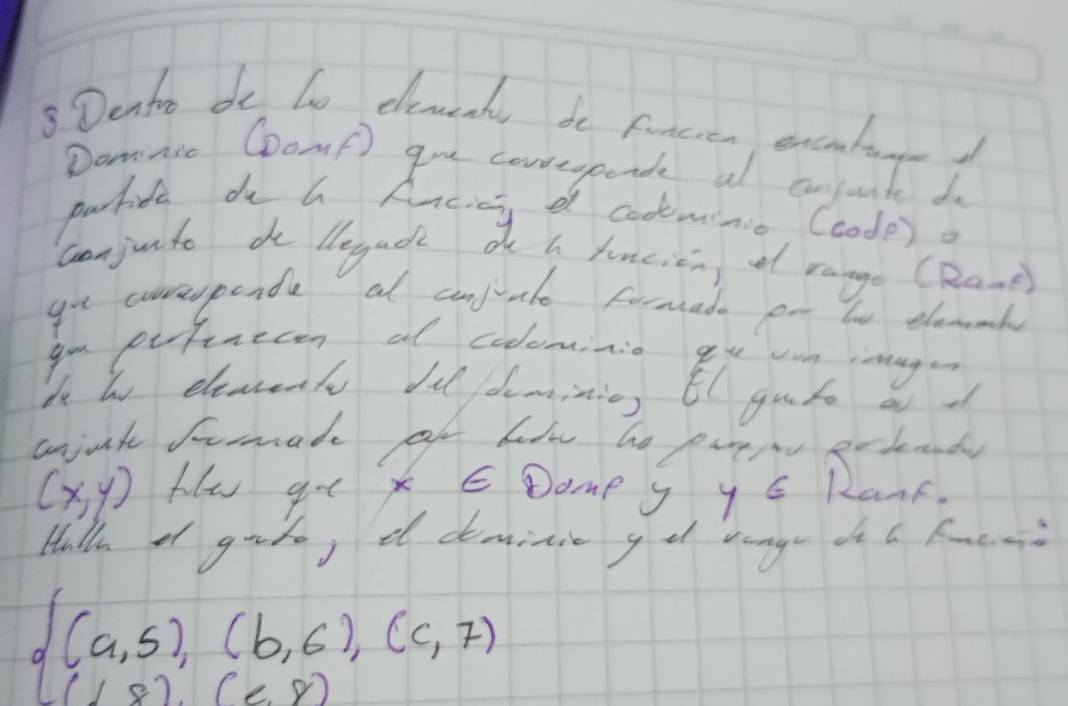 3 Dentro de los elementos de función encontramos el
Dominio (Domf) que corresponde al conjunto de
partida de la función, el codominio (Codf) o
conjunto de llegada de la función, el rango (Ranf)
que corresponde al conjunto formado por los elementos
que pertenecen al codominio que son imagen
de los elementos del dominio, El grafo es el
conjunto formado por todas las parejas ordenadas
(x,y) tales que x ∈ Domf y y ∈ Ranf.
Halla el grafo, el dominio y el rango de la función:
{(a,5), (b,6), (c,7)
(d,8), (e,8)